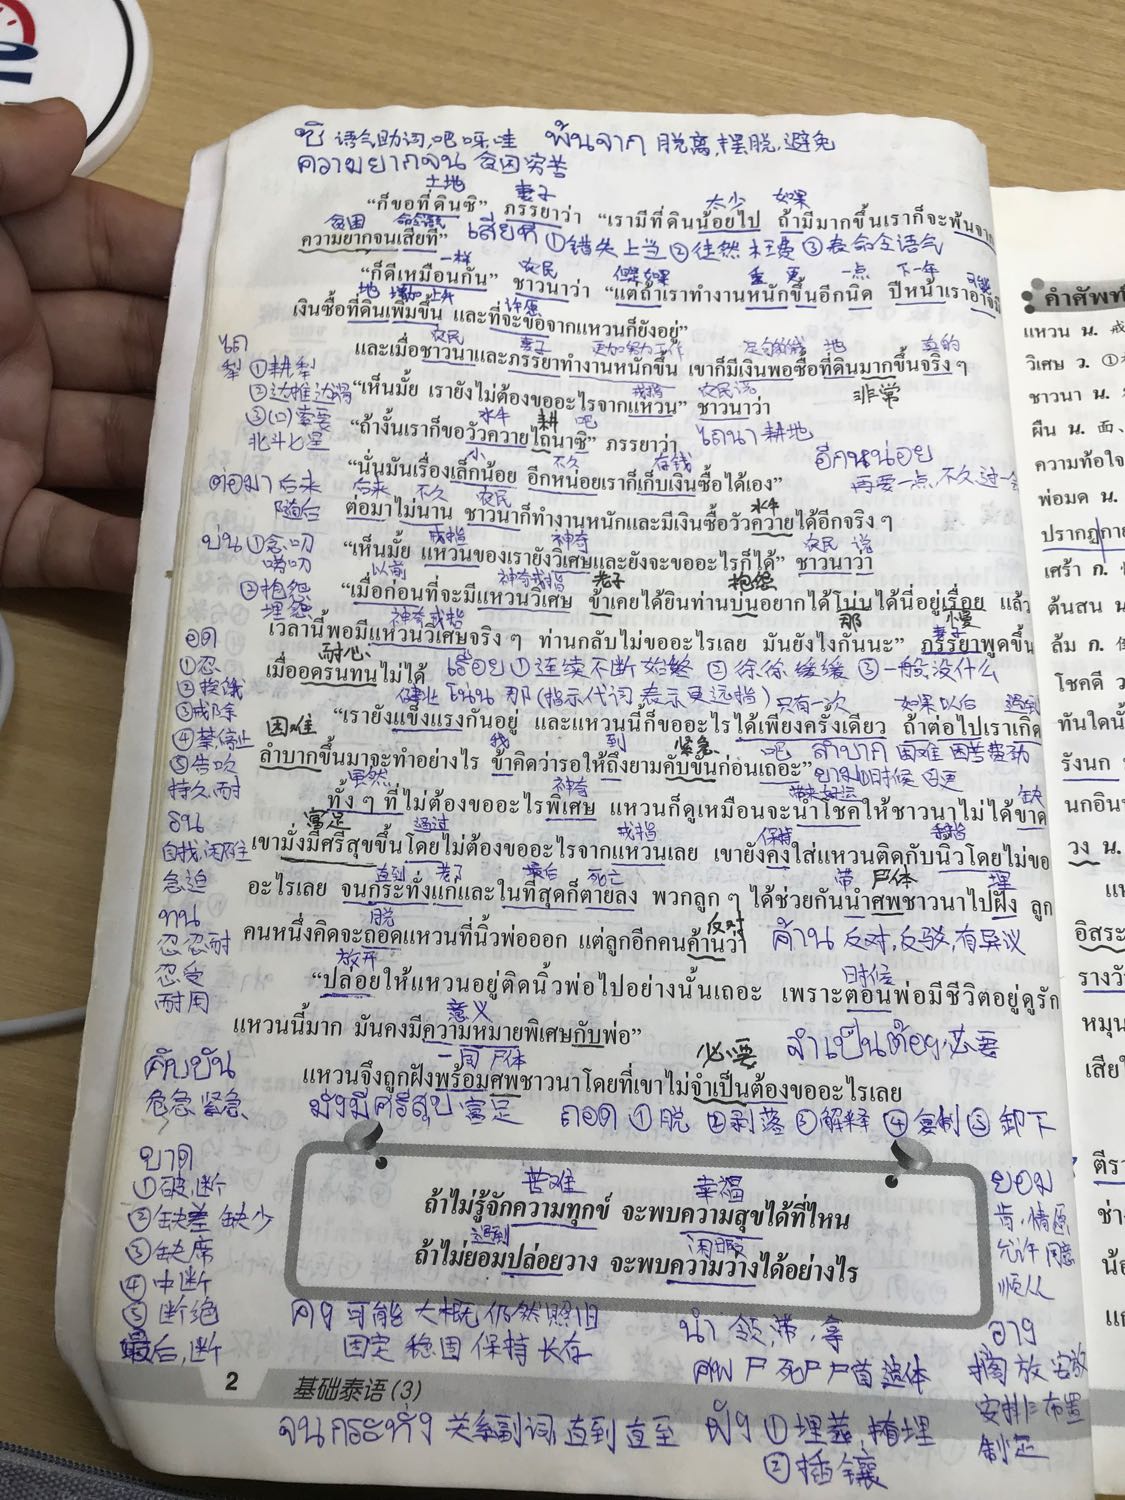 ซิ 语气助词,吧呀哇 พ้นจาก 脱离,摆脱,避免
ความยากจน 贫困穷苦
土地 妻子 太少 如果
“ก็ขอที่ดินซิ” ภรรยาว่า “เรามีที่ดินน้อยไป ถ้ามีมากขึ้นเราก็จะพ้นจาก
贫困
ความยากจนเสียที” เสียที ①错失上当②徒然枉费③表命令语气
一样 农民 假如果 重 更 一点 下一年 可能
“ก็ดีเหมือนกัน” ชาวนาว่า “แต่ถ้าเราทำงานหนักขึ้นอีกนิด ปีหน้าเราอาจมี
地 增加上升 许愿
เงินซื้อที่ดินเพิ่มขึ้น และที่จะขอจากแหวนก็ยังอยู่”
农民 妻子 更加努力工作 足够的钱 地 真的
และเมื่อชาวนาและภรรยาทำงานหนักขึ้น เขาก็มีเงินพอซื้อที่ดินมากขึ้นจริง ๆ
ไถ
犁 ①耕犁
②边推边滑
③(口)索要
北斗七星
戒指 农民说 非常
“เห็นมั้ย เรายังไม่ต้องขออะไรจากแหวน” ชาวนาว่า
水牛 耕 吧
“ถ้างั้นเราก็ขอวัวควายไถนาซิ” ภรรยาว่า ไถนา 耕地
小 不久 存钱 อีกหน่อย
“นั่นมันเรื่องเล็กน้อย อีกหน่อยเราก็เก็บเงินซื้อได้เอง” 再要一点,不久,过一会
ต่อมา 后来
随后
后来 不久 农民 水牛
ต่อมาไม่นาน ชาวนาก็ทำงานหนักและมีเงินซื้อวัวควายได้อีกจริง ๆ
บ่น ①念叨
唠叨
②抱怨
埋怨
戒指 神奇 农民 说
“เห็นมั้ย แหวนของเรายังวิเศษและยังจะขออะไรก็ได้” ชาวนาว่า
以前 神奇戒指 老子 抱怨
“เมื่อก่อนที่จะมีแหวนวิเศษ ข้าเคยได้ยินท่านบ่นอยากได้โน่นได้นี่อยู่เรื่อย แล้ว
神奇戒指 那 慢 妻子
เวลานี้พอมีแหวนวิเศษจริง ๆ ท่านกลับไม่ขออะไรเลย มันยังไงกันนะ” ภรรยาพูดขึ้น
耐心
เมื่ออดรนทนไม่ได้ เรื่อย ①连续不断 始终 ②徐徐缓缓 ③一般没什么
อด
①忍
③戒除
④禁停止
⑤告吹
持久,耐
โน่น 那(指示代词 表示更远指) 只有一次 如果以后 遇到
“เรายังแข็งแรงกันอยู่ และแหวนนี้ก็ขออะไรได้เพียงครั้งเดียว ถ้าต่อไปเราเกิด
困难 我 到 紧急 吧 ลำบาก 困难 困苦费劲
ลำบากขึ้นมาจะทำอย่างไร ข้าคิดว่ารอให้ถึงยามคับขันก่อนเถอะ”
虽然 神奇 带来好运 缺
ทั้ง ๆ ที่ไม่ต้องขออะไรพิเศษ แหวนก็ดูเหมือนจะนำโชคให้ชาวนาไม่ได้ขาด
富足 通过 戒指 保持 手指
เขามั่งมีศรีสุขขึ้นโดยไม่ต้องขออะไรจากแหวนเลย เขายังคงใส่แหวนติดกับนิ้วโดยไม่ขอ
直到 老了 最后 死亡 带 尸体 埋
อะไรเลย จนกระทั่งแก่และในที่สุดก็ตายลง พวกลูก ๆ ได้ช่วยกันนำศพชาวนาไปฝัง ลูก
ทน
忍 忍耐
忍受
耐用
脱 反对
คนหนึ่งคิดจะถอดแหวนที่นิ้วพ่อออก แต่ลูกอีกคนค้านว่า ค้าน 反对,反驳,有异议
放开 时候
“ปล่อยให้แหวนอยู่ติดนิ้วพ่อไปอย่างนั้นเถอะ เพราะตอนพ่อมีชีวิตอยู่ดูรัก
意义
แหวนนี้มาก มันคงมีความหมายพิเศษกับพ่อ” จำเป็นต้อง 必要
一同 尸体 必要
แหวนจึงถูกฝังพร้อมศพชาวนาโดยที่เขาไม่จำเป็นต้องขออะไรเลย
คับขัน
危急 紧急
มั่งมีศรีสุข 富足 ถอด ①脱 ②剥落③解释④复制⑤卸下
ขาด
①破,断
②缺差 缺少
③缺席
④中断
⑤断绝
最后,断
苦难 幸福
ถ้าไม่รู้จักความทุกข์ จะพบความสุขได้ที่ไหน
遇到 闲暇
ถ้าไม่ยอมปล่อยวาง จะพบความว่างได้อย่างไร
ยอม
肯,情愿
允许 同意
顺从
คง 可能 大概 仍然 照旧
固定 稳固 保持 长存
นำ 领,带,拿
ศพ 尸 死尸 尸首 遗体
วาง
放 安放
安排 布置
制定
2 基础泰语(3)
จนกระทั่ง 关系副词,直到直至 ฝัง ①埋葬,掩埋
②插镶
คำศัพท์
แหวน น.
วิเศษ ว. ①
ชาวนา น.
ผืน น. 面、
ความท้อใจ
พ่อมด น.
ปรากฏกาย
เศร้า ก.
ต้นสน น.
ล้ม ก.
โชคดี ว
ทันใดนั้
รังนก
นกอิน
วง น.
อิสระ
รางวั
หมุน
เสียใ
ตีรา
ช่าง
น้อ